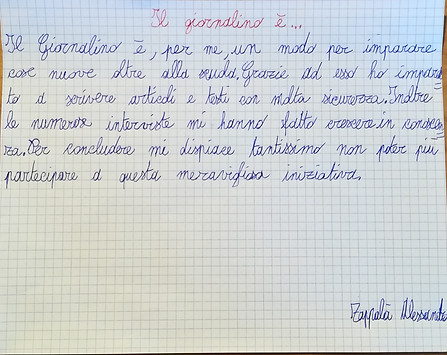 Il giornalino è...
Il Giornalino è, per me, un modo per imparare
cose nuove oltre alla scuola. Grazie ad esso ho impara
to a scrivere articoli e testi con molta sicurezza. Inoltre
le numerose interviste mi hanno fatto crescere in conoscen
za. Per concludere mi dispiace tantissimo non poter più
partecipare a questa meravigliosa iniziativa.
Zappalà Alessandro